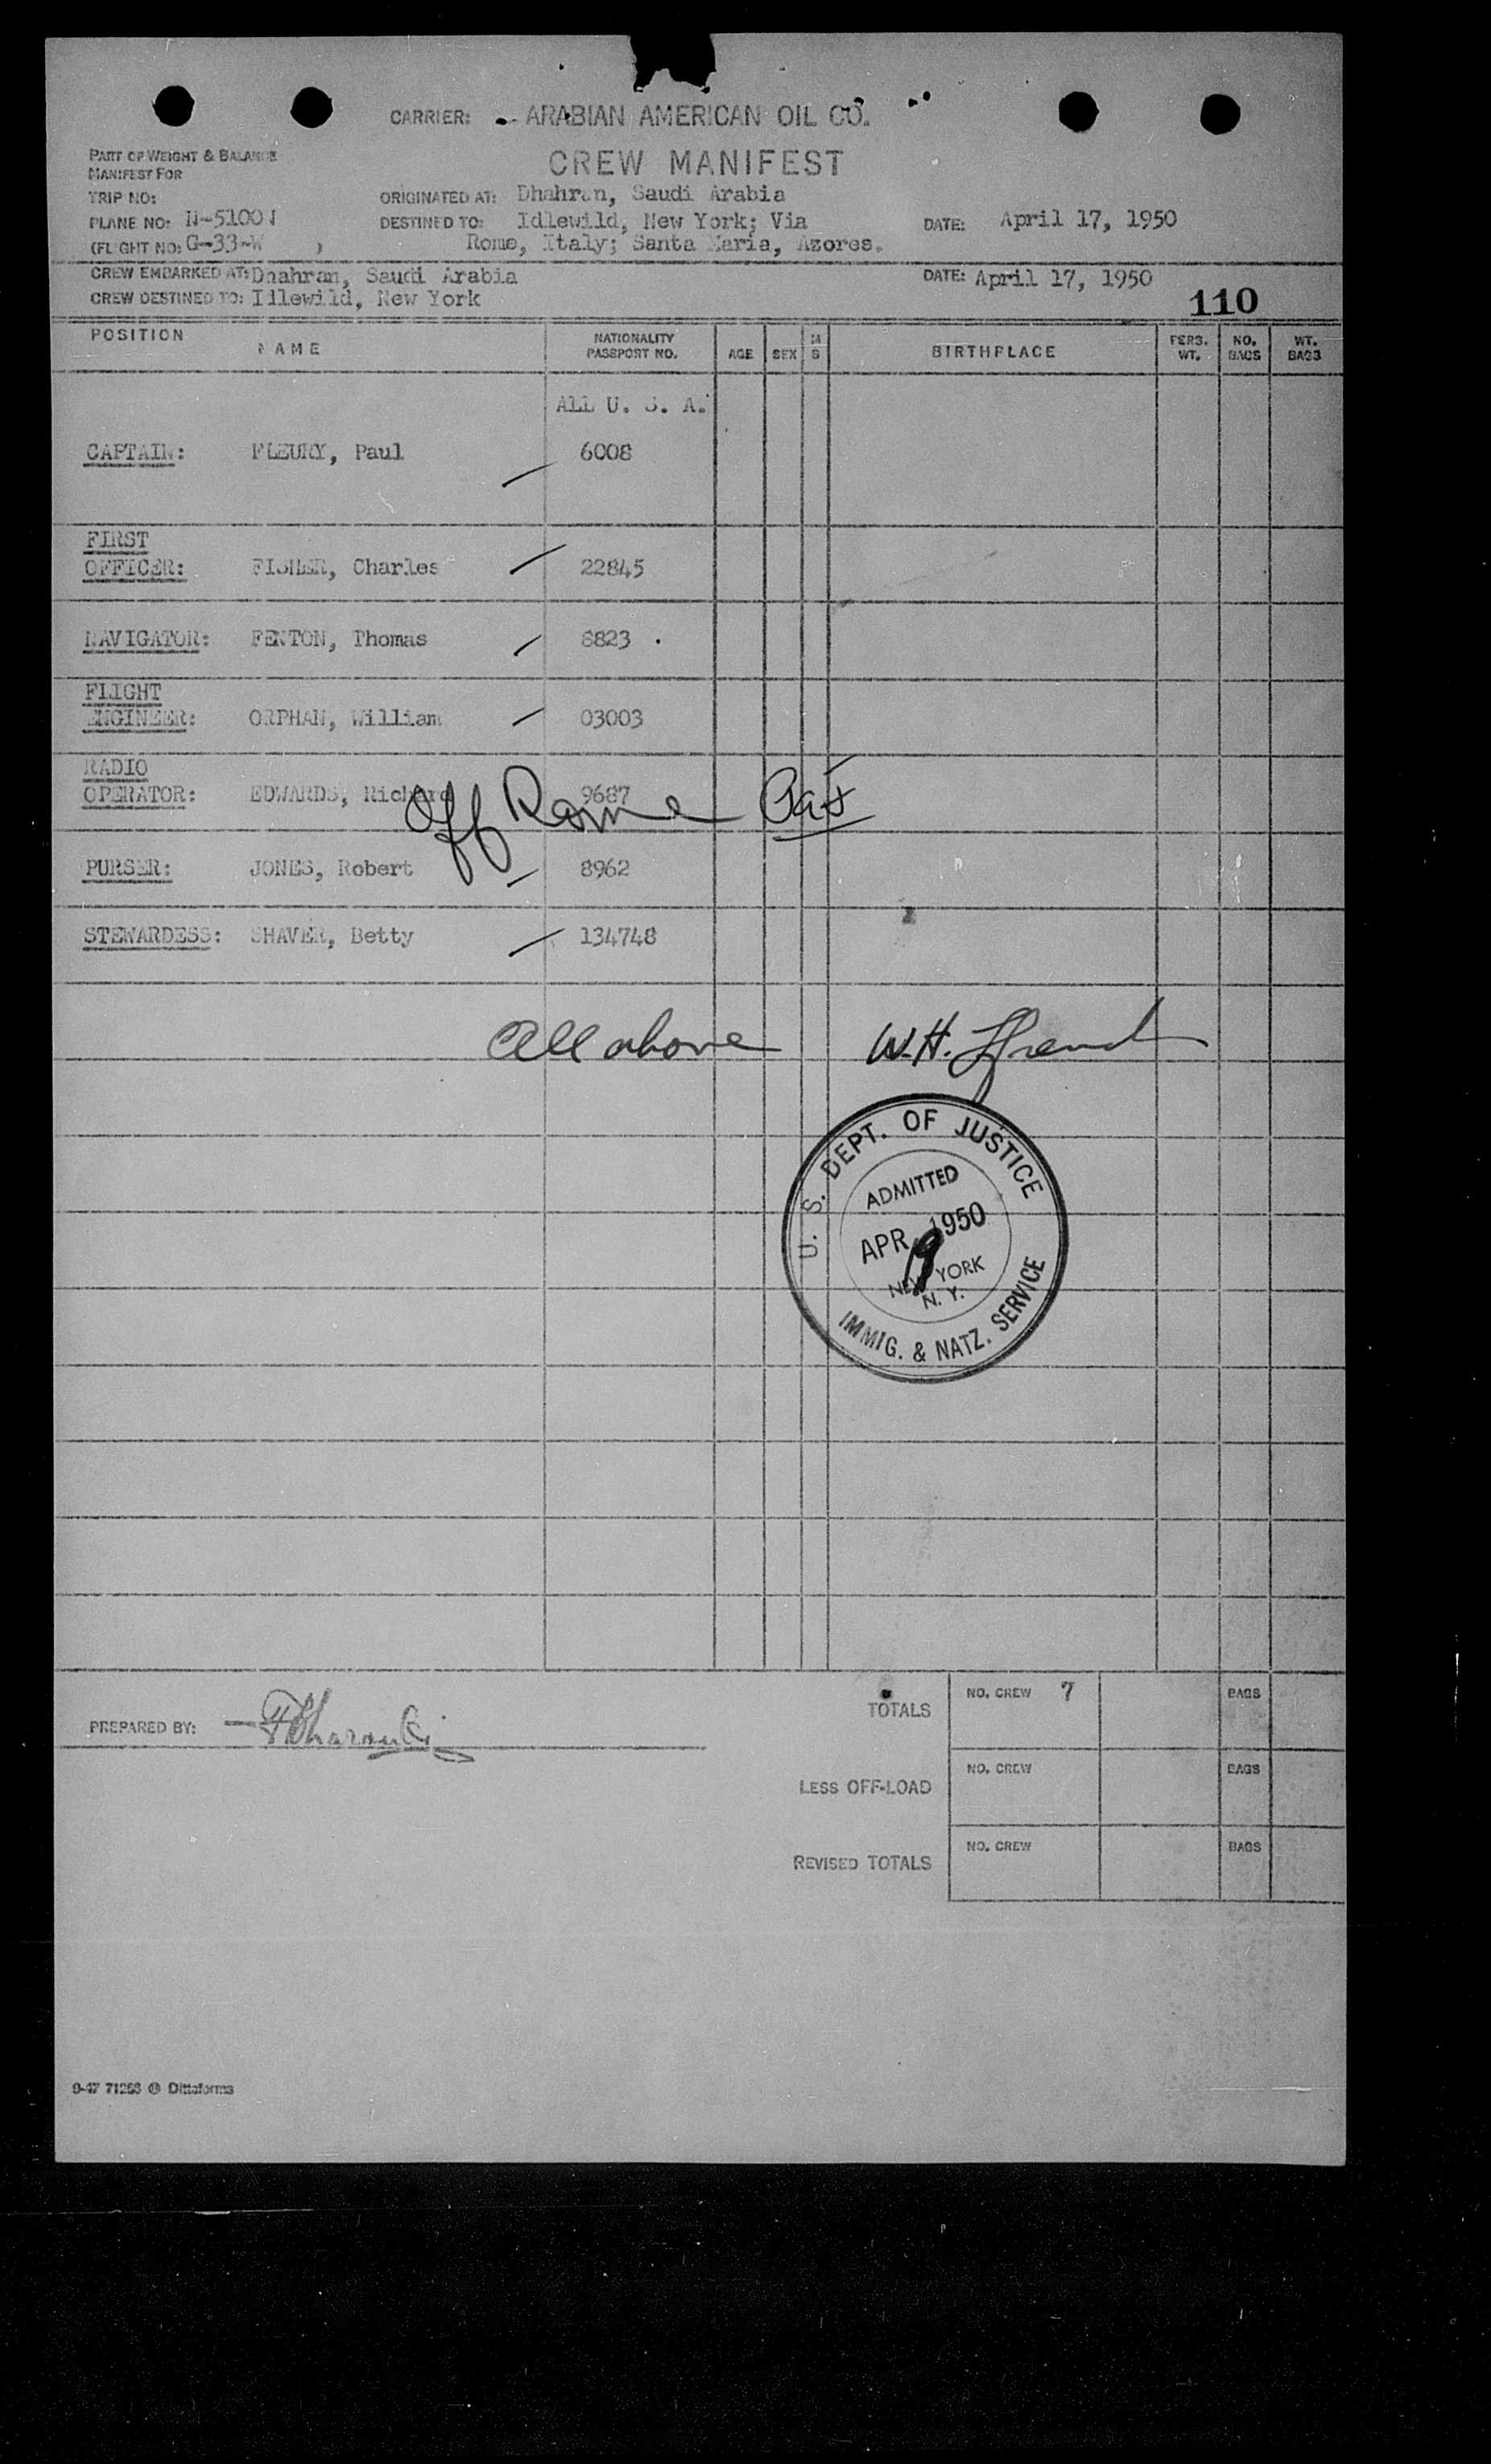 CARRIER: ARABIAN AMERICAN OIL CO.
PART OF WEIGHT & BALANCE
MANIFEST FOR
CREW MANIFEST
TRIP NO:
ORIGINATED AT: Dhahran, Saudi Arabia
PLANE NO: N-5100N
DESTINED TO: Idlewild, New York; Via
DATE: April 17, 1950
(FLIGHT NO: G-33-W )
Rome, Italy; Santa Maria, Azores.
CREW EMBARKED AT: Dhahran, Saudi Arabia
DATE: April 17, 1950
CREW DESTINED TO: Idlewild, New York
110
POSITION NAME NATIONALITY PASSPORT NO. AGE SEX M S BIRTHPLACE PERS. WT. NO. BAGS WT. BAGS
ALL U. S. A.
CAPTAIN: FLEURY, Paul 6008
FIRST
OFFICER: FISHER, Charles 22845
NAVIGATOR: FENTON, Thomas 8823
FLIGHT
ENGINEER: ORPHAN, William 03003
RADIO
OPERATOR: EDWARDS, Richard 9687
Off Rome
PURSER: JONES, Robert 8962
STEWARDESS: SHAVER, Betty 134748
All above W.H.
U. S. DEPT. OF JUSTICE
ADMITTED
APR 19 1950
NEW YORK
N. Y.
IMMIG. & NATZ. SERVICE
PREPARED BY:
TOTALS NO. CREW 7 BAGS
LESS OFF-LOAD NO. CREW BAGS
REVISED TOTALS NO. CREW BAGS
9-47 Dittoforms